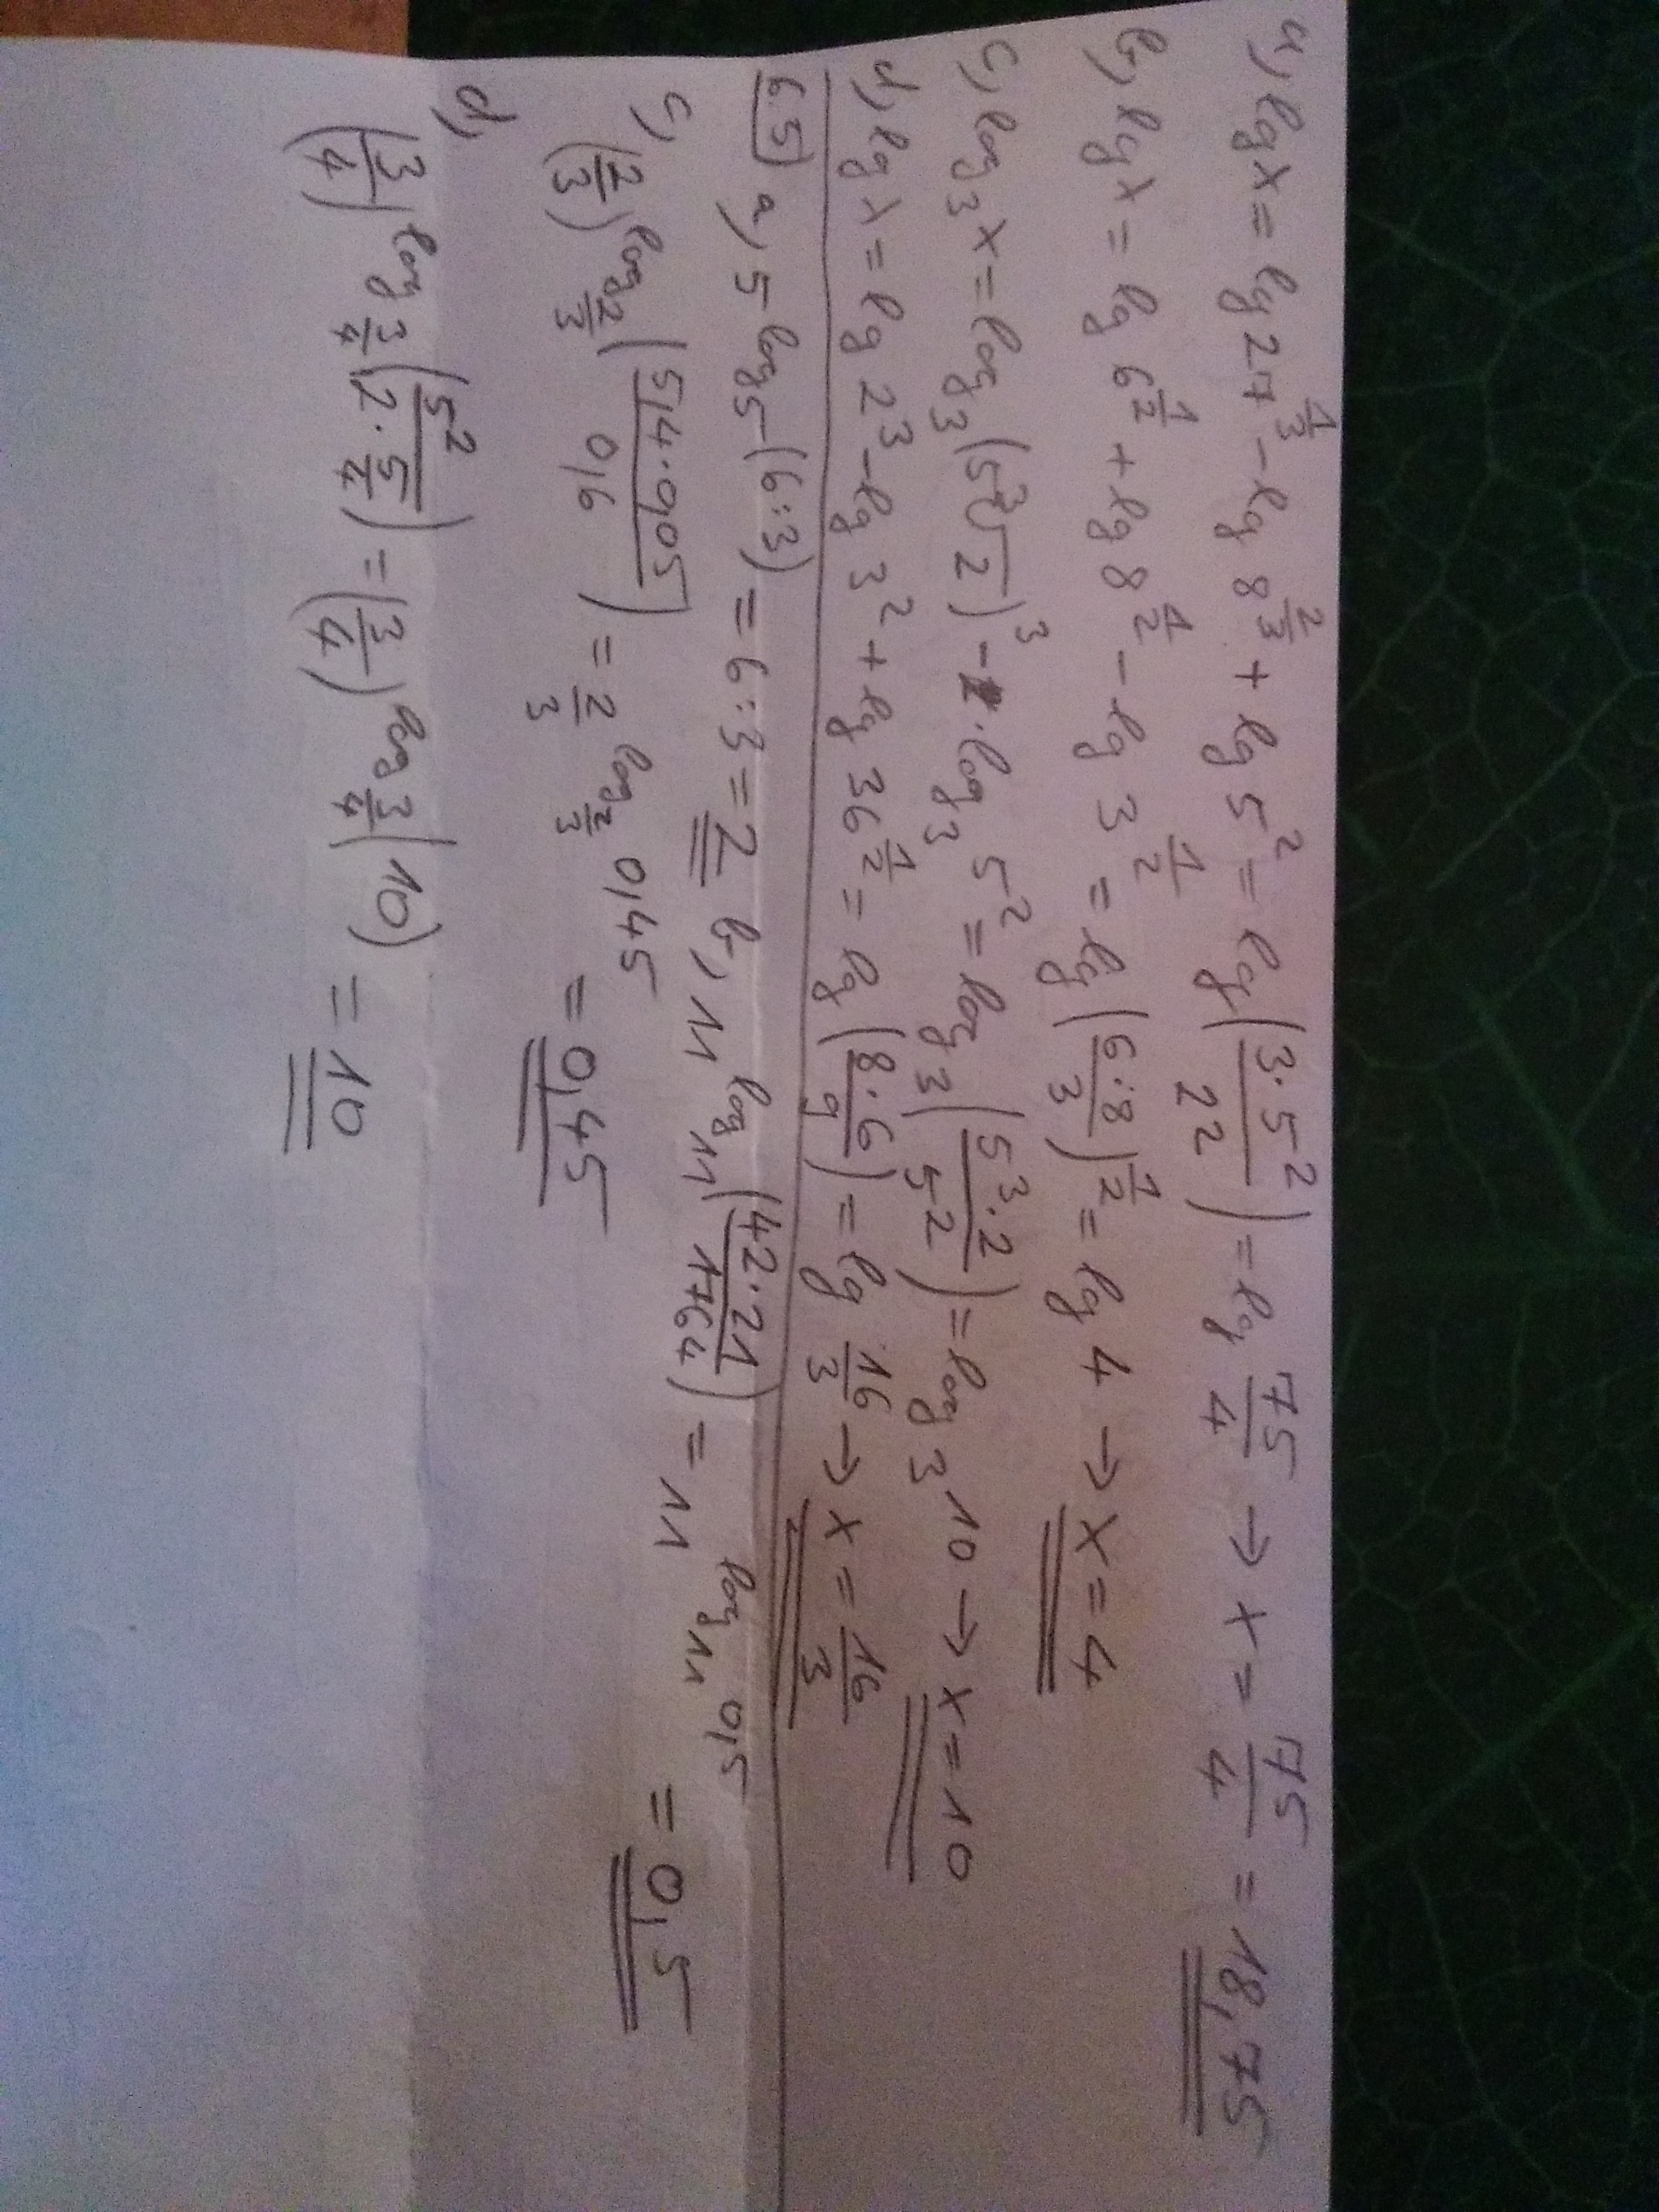 a, lg x = lg 27^(1/3) - lg 8^(2/3) + lg 5^2 = lg (3·5^2 / 2^2) = lg 75/4 → x = 75/4 = 18,75
b, lg x = lg 6^(1/2) + lg 8^(1/2) - lg 3^(1/2) = lg (6·8 / 3)^(1/2) = lg 4 → x = 4
c, log_3 x = log_3 (5 ∛2)^3 - 1 · log_3 5^2 = log_3 (5^3·2 / 5^2) = log_3 10 → x = 10
d, lg x = lg 2^3 - lg 3^2 + lg 36^(1/2) = lg (8·6 / 9) = lg 16/3 → x = 16/3
6.5 a, 5^(log_5 (6:3)) = 6:3 = 2 b, 11^(log_11 (42·21 / 1764)) = 11^(log_11 0,5) = 0,5
c, (2/3)^(log_(2/3) (5,4·0,05 / 0,6)) = 2/3^(log_(2/3) 0,45) = 0,45
d, (3/4)^(log_(3/4) (5^2 / 2·5/4)) = (3/4)^(log_(3/4) (10)) = 10